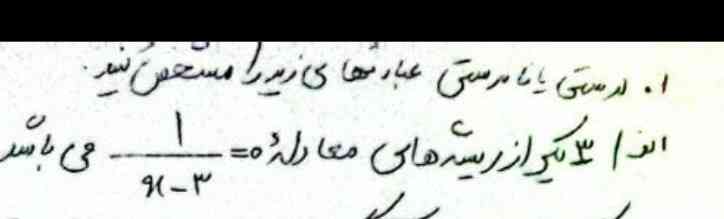 ۱. درستی یا نادرستی عبارتهای زیر را مشخص کنید.
الف) ۳ یکی از ریشه‌های معادلهٔ ۰ = ۱/(x-۳) می باشد